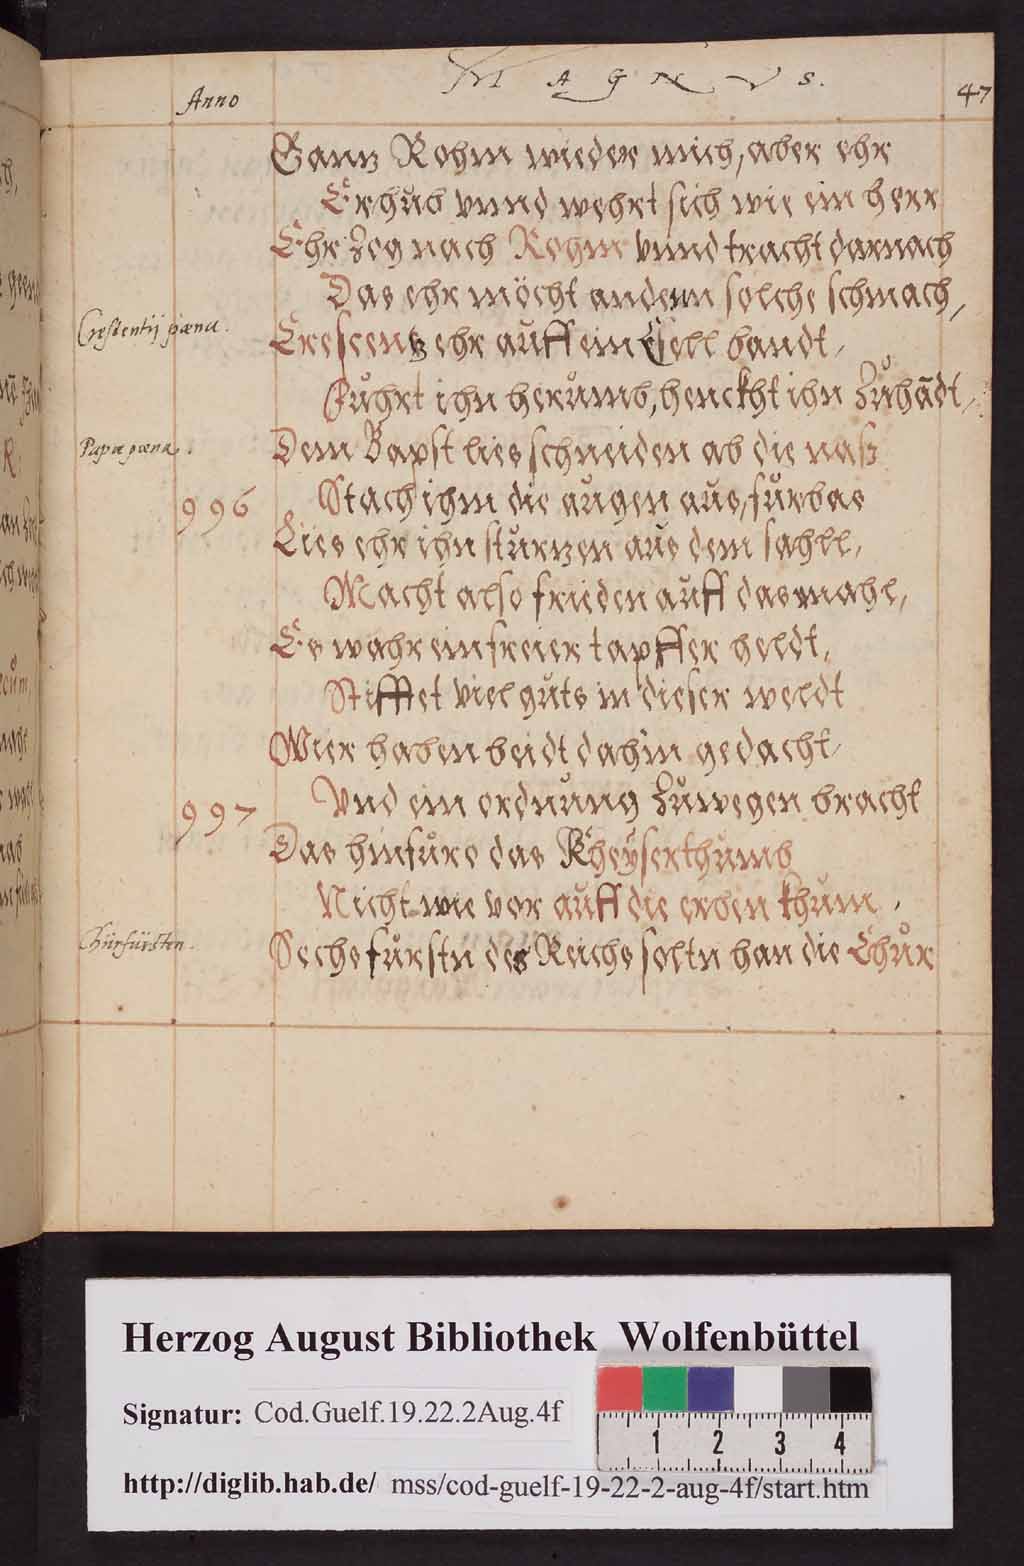 MAGNVS.
Anno
47
Gantz Rohm wieder mich, aber ehr
Erhub vnnd wehrt sich wie ein herr
Ehr Zog nach Rohm vnnd tracht darnach
Das ehr möcht andenn solche schmach,
Crescentij pæna.
Crescentz ehr auff ein Esell bandt,
Führt ihn herumb, henckht ihn Zuhãdt,
Papæ pæna.
Dem Bapst lies schneiden ab die nasz
996
Stach ihm die augen aus, fürbas
Lies ehr ihn sturtzen aus dem sahll,
Macht also frieden auff das mahl,
Es wahr ein freier tapffer heldt,
Stifftet viel guts in dieser weldt
Wier haben beidt dahin gedacht,
997
Vnd ein ordnung Zuwegen bracht
Das hinfüre das Kheÿserthumb
Nicht wie vor auff die erben khum,
Chürfürsten.
Sechs fürstn des Reichs soltn han die Chur
Herzog August Bibliothek Wolfenbüttel
Signatur: Cod.Guelf.19.22.2Aug.4f
1 2 3 4
http://diglib.hab.de/ mss/cod-guelf-19-22-2-aug-4f/start.htm